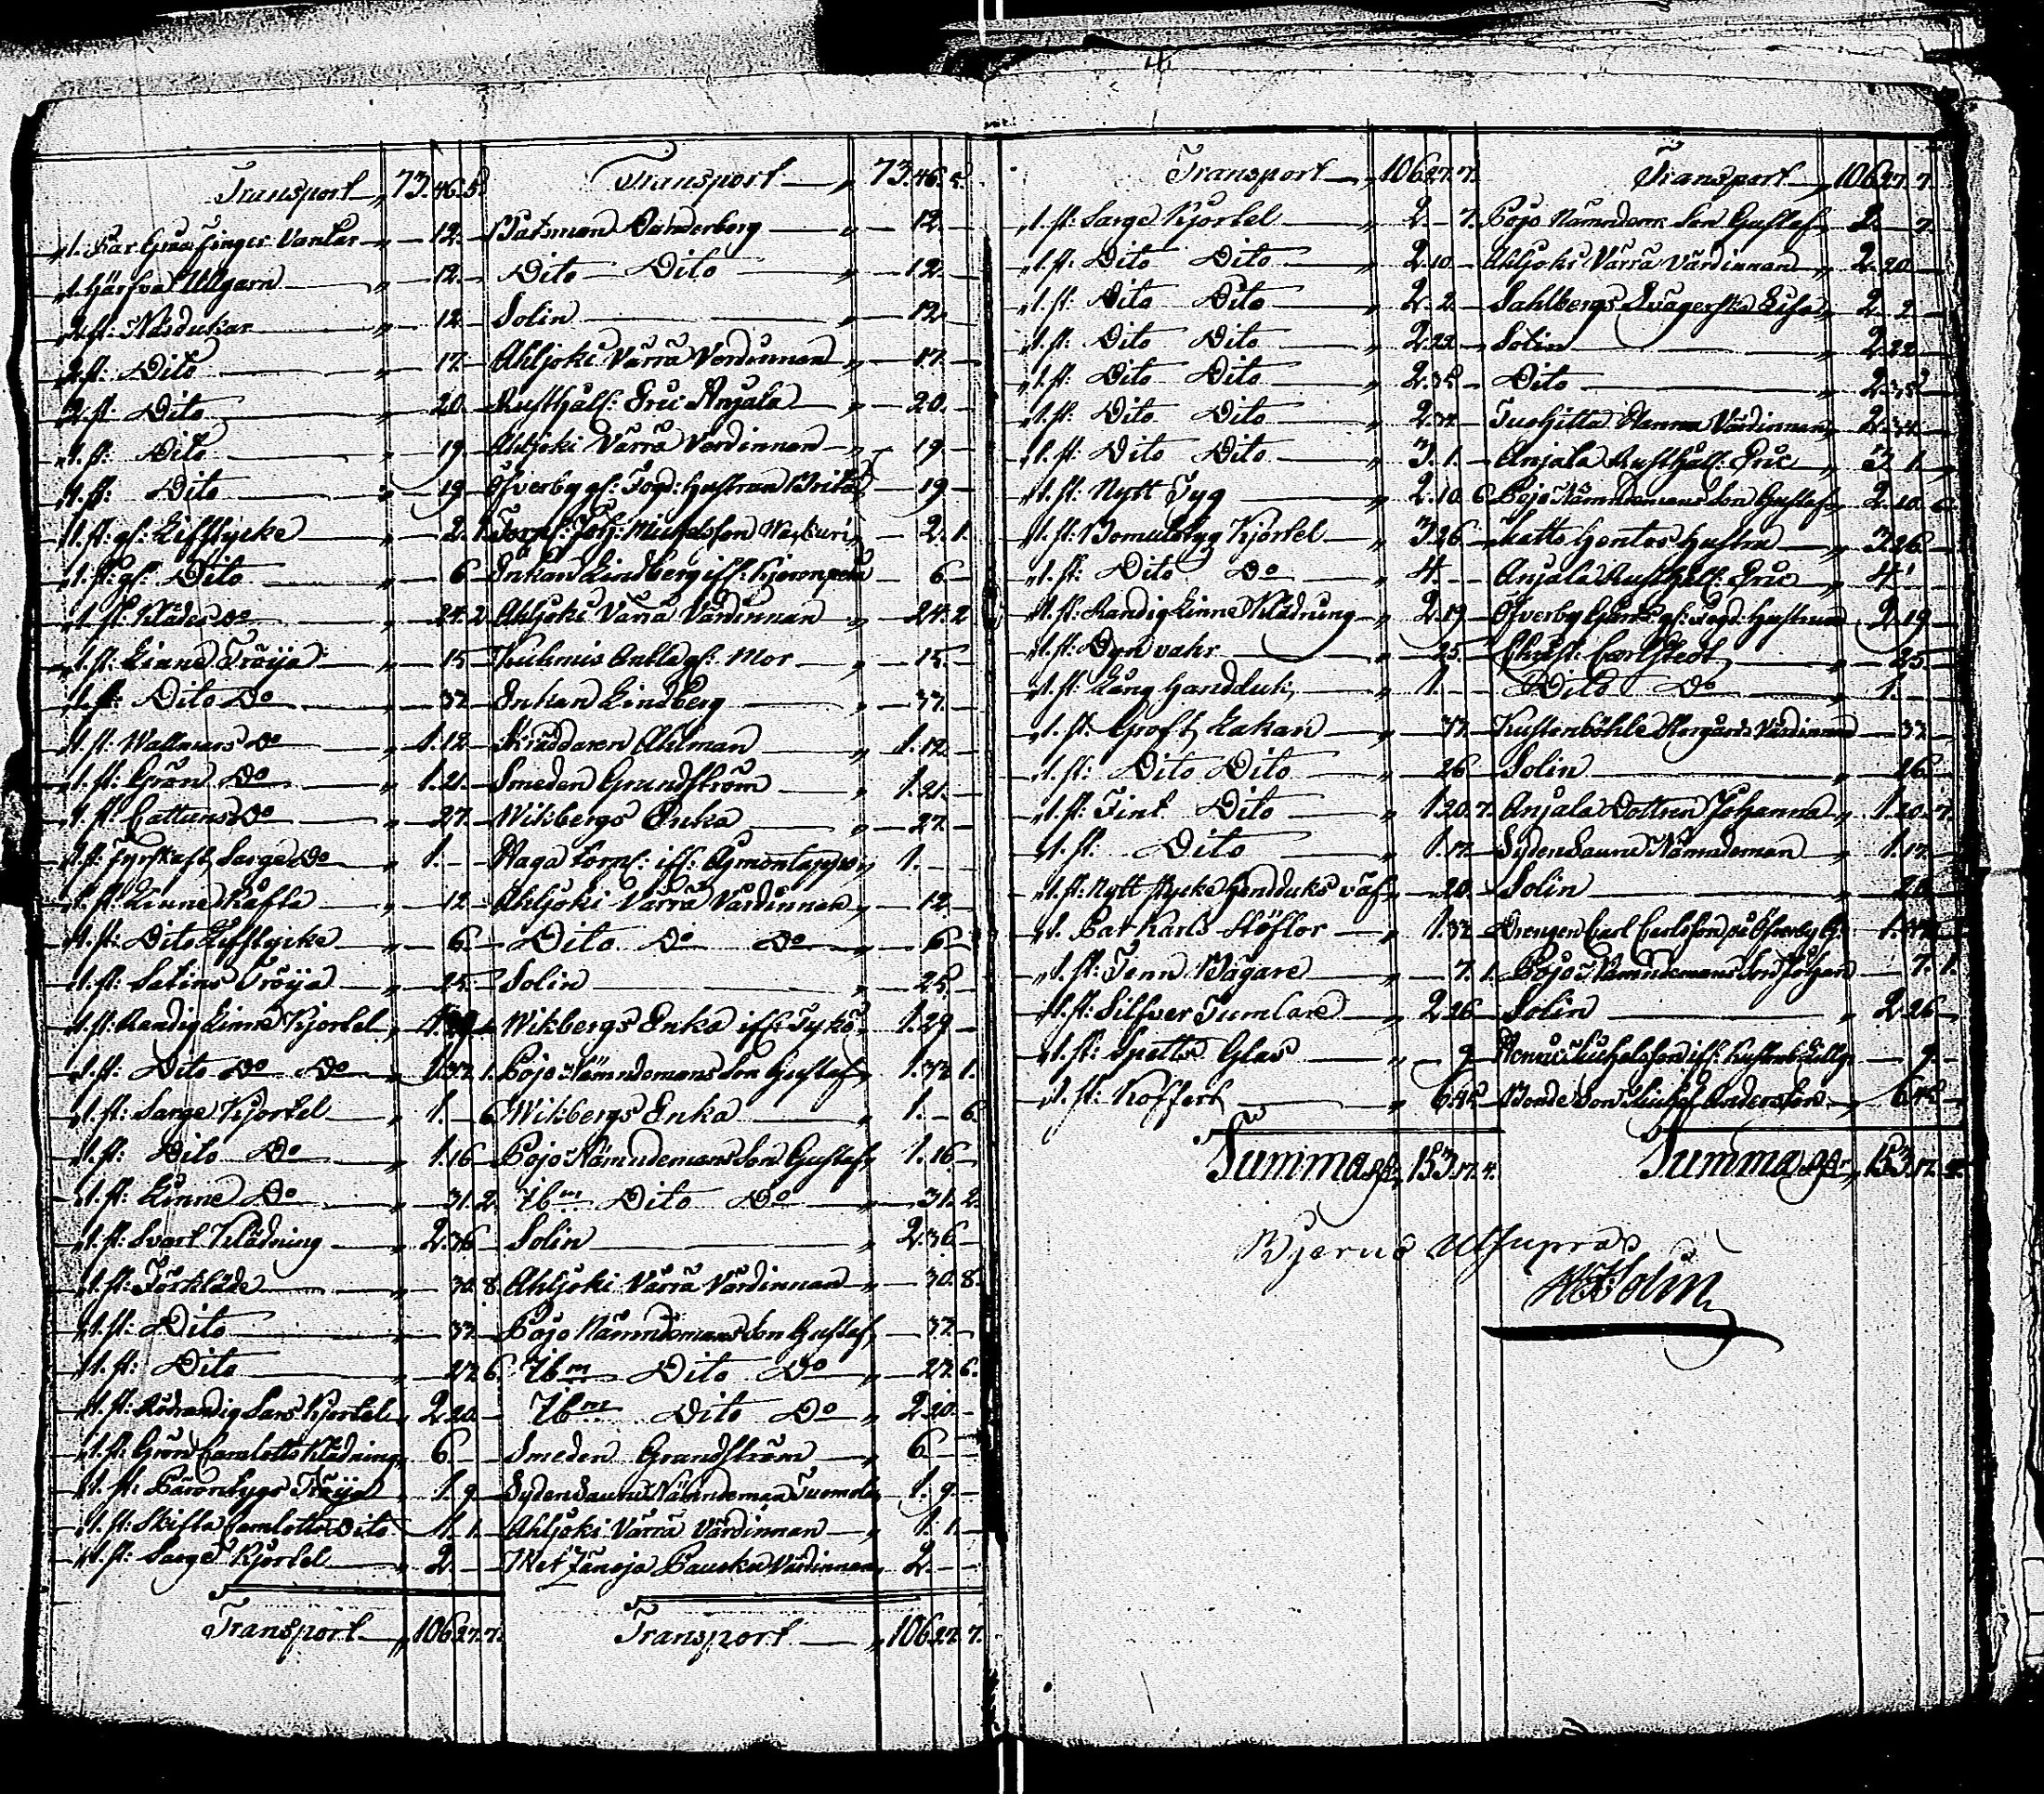 Transport „ 73. 46. 5. Transport „ 73. 46. 5.
„1. Par Grua finger Vantar „ — 12. — Båtsman Sanderberg „ — 12. —
„1. härfva Ullgarn „ — 12. — Dito Dito „ — 12. —
„2. st: Näsdukar „ — 12. — Solin „ — 12. —
„2. st: Dito „ — 17. — Ahljoki Värrä Verdinnan „ — 17. —
„2. st: Dito „ — 20. — Rusthåls: Eric Anjala „ — 20. —
„1. st: Dito „ — 19. — Ahljoki Värrä Verdinnan „ — 19. —
„1. st: Dito „ — 19. — Öfverby gs: Fogd: hustrun Brita — 19. —
„1. st: gs: Lifstycke „ — 2. 1. Torps: Joh: Michelsson „ — 2. 1.
„1. st: gs: Dito „ — 6. — Enkan Lindberg ifr: — 6. —
„1. st: Klädes Do „ — 24. 2. Ahljoki Värrä Värdinnan „ — 24. 2.
„1. st: Linne Tröija „ — 15. — Kuhmis gs: Mor „ — 15. —
„1. st: Dito Do „ — 37. — Enkan Lindberg „ — 37. —
„1. st: Wallmars Do „ 1. 12. — Skräddaren Ahlman „ 1. 12. —
„1. st: Grön Do „ 1. 21. — Smeden Grundström „ 1. 21. —
„1. st: Cattuns Do „ — 27. — Wikbergs Enka „ — 27. —
„1. st: fyrskaft Sarge Do „ 1. — — Haga torps: ifr: „ 1. — —
„1. st: Linne Kåfta „ — 12. — Ahljoki Värrä Värdinnan „ — 12. —
„1. st: Dito Lifstycke „ — 6. — Dito Do Do „ — 6. —
„1. st: Satins Tröija „ — 25. — Solin „ — 25. —
„1. st: Randig Linne Kjortel „ 1. 29. — Wikbergs Enka ifr: Tykö „ 1. 29. —
„1. st: Dito Do Do „ 1. 37. 1. Pojo Nämndemans Son Gustaf „ 1. 37. 1.
„1. st: Sarge Kjortel „ 1. — 6. Wikbergs Enka „ 1. — 6.
„1. st: Dito Do „ 1. 16. — Pojo Nämndemans Son Gustaf „ 1. 16. —
„1. st: Linne Do „ — 31. 2. Ibm Dito Do „ — 31. 2.
„1. st: Svart Klädning „ 2. 36. — Solin „ 2. 36. —
„1. st: Förkläde „ — 30. 8. Ahljoki Värrä Värdinnan „ — 30. 8.
„1. st: Dito „ — 37. — Pojo Nämndemans Son Gustaf „ — 37. —
„1. st: Dito „ — 27. 6. Ibm Dito Do „ — 27. 6.
„1. st: Rödrandig Sars Kjortel „ 2. 20. — Ibm Dito Do „ 2. 20. —
„1. st: Grön Camlotts Klädning „ 6. — — Smeden Grundström „ 6. — —
„1. st: Tröija „ 1. 9. — Sydensaune Nämndeman Tuomola „ 1. 9. —
„1. st: Skifta Camlotts Dito „ 1. 1. — Ahljoki Värrä Värdinnan „ 1. 1. —
„1. st: Sarge Kjortel „ 2. — — Värdinnan „ 2. — —
Transport „ 106. 27. 7. Transport „ 106. 27. 7.
Transport „ 106. 27. 7. Transport „ 106. 27. 7.
„1. st: Sarge Kjortel „ 2. — 7. Pojo Nämndem: Son Gustaf „ 2. — 7.
„1. st: Dito Dito „ 2. 20. — Ahljoki Värrä Värdinnan „ 2. 20. —
„1. st: Dito Dito „ 2. 2. — Sahlbergs Svägerska Lisa „ 2. 2. —
„1. st: Dito Dito „ 2. 22. — Solin „ 2. 22. —
„1. st: Dito Dito „ 2. 35. — Dito „ 2. 35. —
„1. st: Dito Dito „ 2. 34. — Värdinnan „ 2. 34. —
„1. st: Dito Dito „ 3. 1. — Anjala Rusthåll: Eric „ 3. 1. —
„1. st: Nytt Tyg „ 2. 10. 6. Pojo Nämndemans Son Gustaf „ 2. 10. 6.
„1. st: Bomulstyg Kjortel „ 3. 26. — Hustru „ 3. 26. —
„1. st: Dito Do „ 4. — — Anjala Rusthåll: Eric „ 4. — —
„1. st: Randig Linne Klädning „ 2. 19. — Öfverby gs: Fogd: Hustrun „ 2. 19. —
„1. st: Dyn vahr „ — 25. — Christ: Carlstedt „ — 25. —
„1. st: Lång handduk „ 1. — — Dito Do „ 1. — —
„1. st: Groft Lakan „ — 37. — Kustenböhle Storgårds Värdinnan — 37. —
„1. st: Dito Dito „ — 26. — Solin „ — 26. —
„1. st: Fint Dito „ 1. 20. 7. Anjala Dottren Johanna „ 1. 20. 7.
„1. st: Dito „ 1. 17. — Sydensaune Nämndeman „ 1. 17. —
„1. st: Nytt stycke handduks väf „ — 20. — Solin „ — 20. —
„1. Par Karls Stöflor „ 1. 37. — Drengen Carl Carlsson på Öfverby G: 1. 37. —
„1. st: Tenn Bägare „ — 7. 1. Pojo Nämndemans Son Johan — 7. 1.
„1. st: Silfver Tumlare „ 2. 26. — Solin „ 2. 26. —
„1. st: Spetts Glas „ — 9. — Michelsson ifr: — 9. —
„1. st: Koffert „ 6. 45. — Bonde Son Michel Andersson „ 6. 45. —
Summa „ 153. 17. 4. Summa „ 153. 17. 4.
Bjerno Utsupra